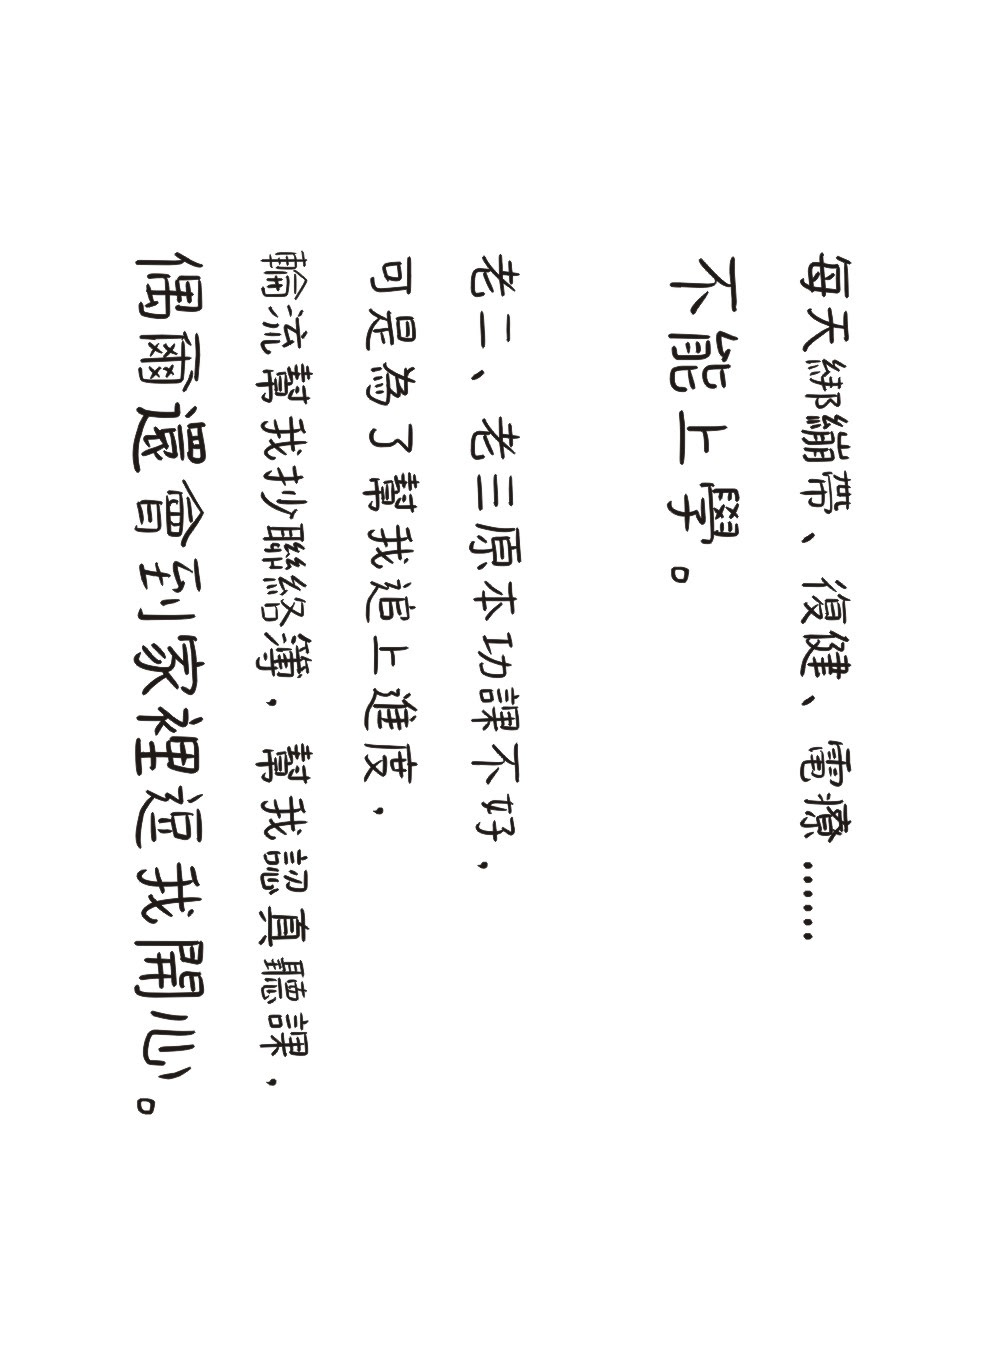 每天綁繃帶、復健、電療……
不能上學。
老二、老三原本功課不好，
可是為了幫我追上進度，
輪流幫我抄聯絡簿，幫我認真聽課，
偶爾還會到家裡逗我開心。